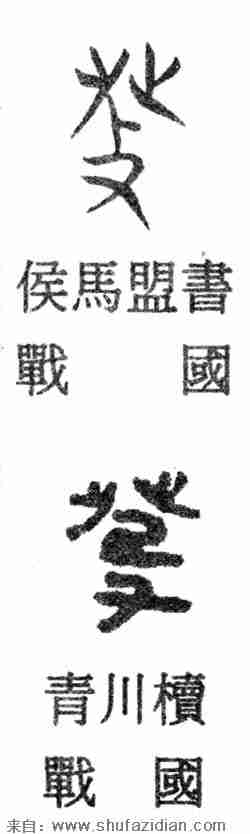 侯馬盟書
戰國
青川櫝
戰國
来自：www.shufazidian.com